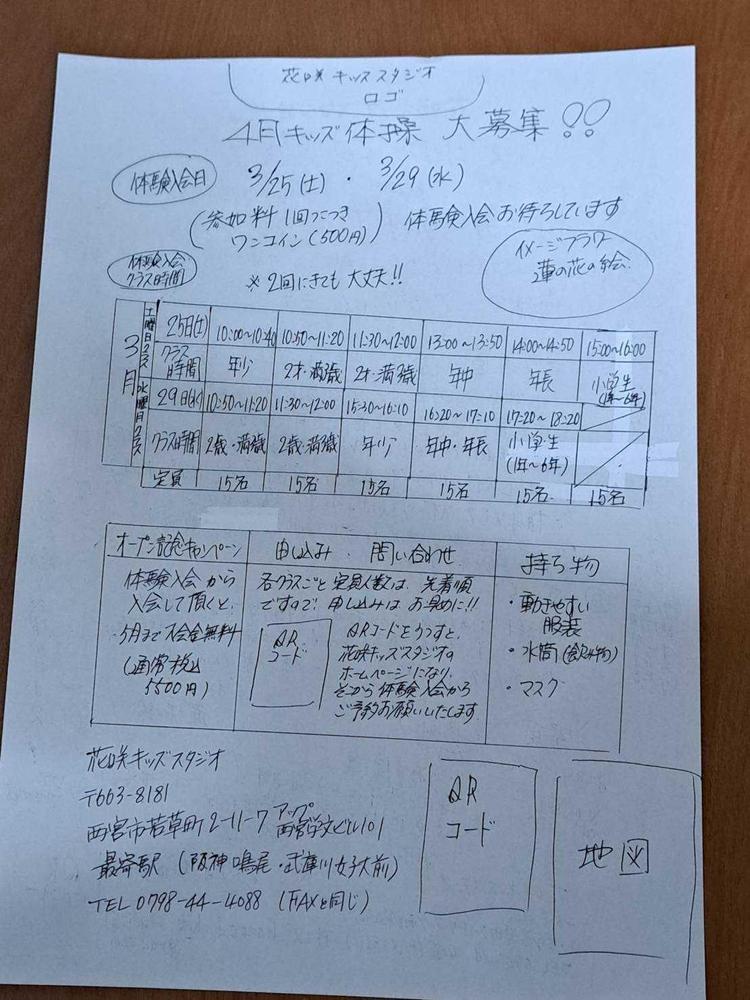 花咲キッズスタジオ
ロゴ
4月キッズ体操 大募集!!
体験入会日 3/25(土)・3/29(水)
(参加料1回につき
ワンコイン(500円)) 体験入会お待ちしています
体験入会
クラス時間
※2回にきても大丈夫!!
イメージフラワー
蓮の花の絵
3月
土曜日クラス
25日(土) 10:00~10:40 10:50~11:20 11:30~12:00 13:00~13:50 14:00~14:50 15:00~16:00
クラス時間 年少 2才・満3歳 2才・満3歳 年中 年長 小学生(1年~6年)
水曜日クラス
29日(水) 10:50~11:20 11:30~12:00 15:30~16:10 16:20~17:10 17:20~18:20
クラス時間 2歳・満3歳 2歳・満3歳 年少 年中・年長 小学生(1年~6年)
定員 15名 15名 15名 15名 15名 15名
オープン記念キャンペーン
体験入会から
入会して頂くと、
・5月まで入会金無料
(通常税込
5500円)
申し込み・問い合わせ
各クラスごと定員人数は、先着順
ですので、申し込みはお早めに!!
QR
コード
QRコードをうつすと、
花咲キッズスタジオの
ホームページになり、
そこから体験入会から
ご予約お願いいたします
持ち物
・動きやすい
服装
・水筒(飲み物)
・マスク
花咲キッズスタジオ
〒663-8181
西宮市若草町2-11-7 アップ西宮学文ビル101
最寄駅(阪神鳴尾・武庫川女子大前)
TEL 0798-44-4088 (FAXと同じ)
QR
コード
地図